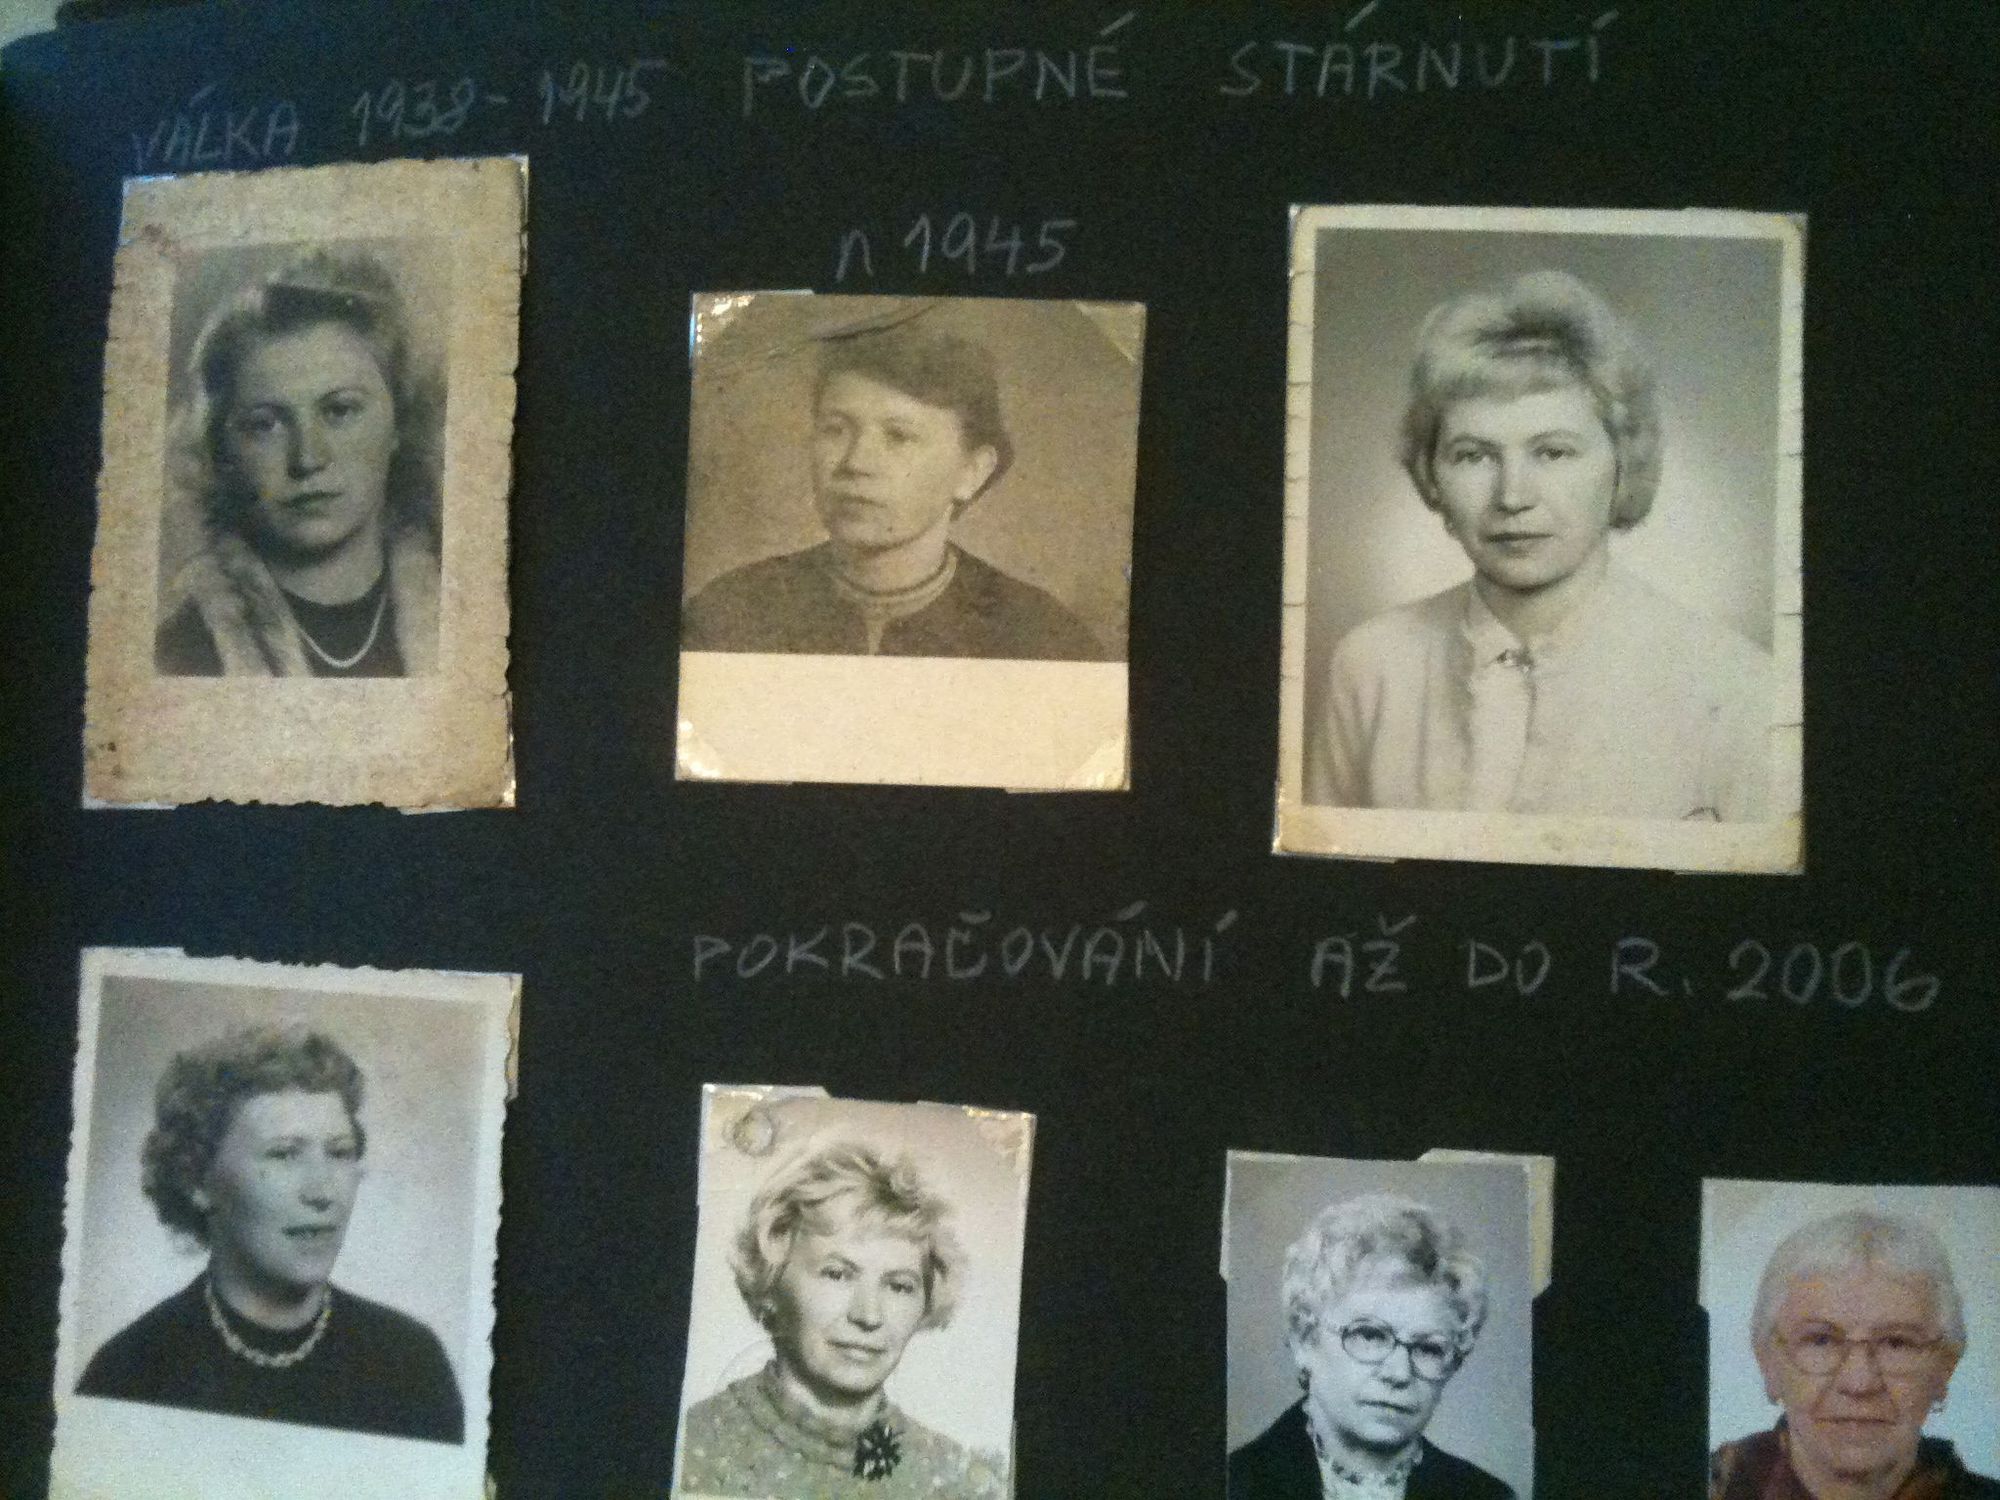 VÁLKA 1938-1945 POSTUPNÉ STÁRNUTÍ
n 1945
POKRAČOVÁNÍ AŽ DO R. 2006